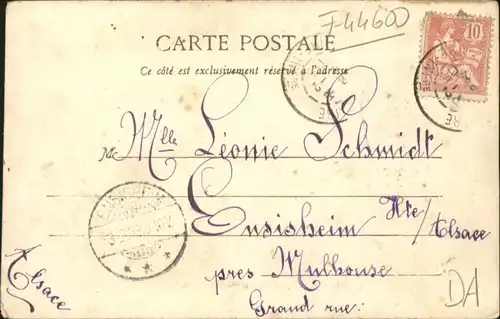 F44600
10
CARTE POSTALE
Ce côté est exclusivement réservé à l'adresse
M
Mlle Léonie Schmidt
Ensisheim Hte/Alsace
près Mulhouse
Grand rue:
Alsace
DA